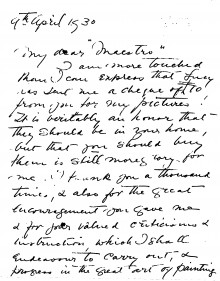 9th April 1930
My dear "Maestro"
I am more touched
than I can express that Lucy
has sent me a cheque of £10
from you for my pictures!
It is veritably an honor that
they should be in your home,
but that you should buy
them is still more so, for
me. I thank you a thousand
times, & also for the great
encouragement you gave me
& for your valued criticisms &
instruction which I shall
endeavour to carry out, &
progress in the great art of painting.